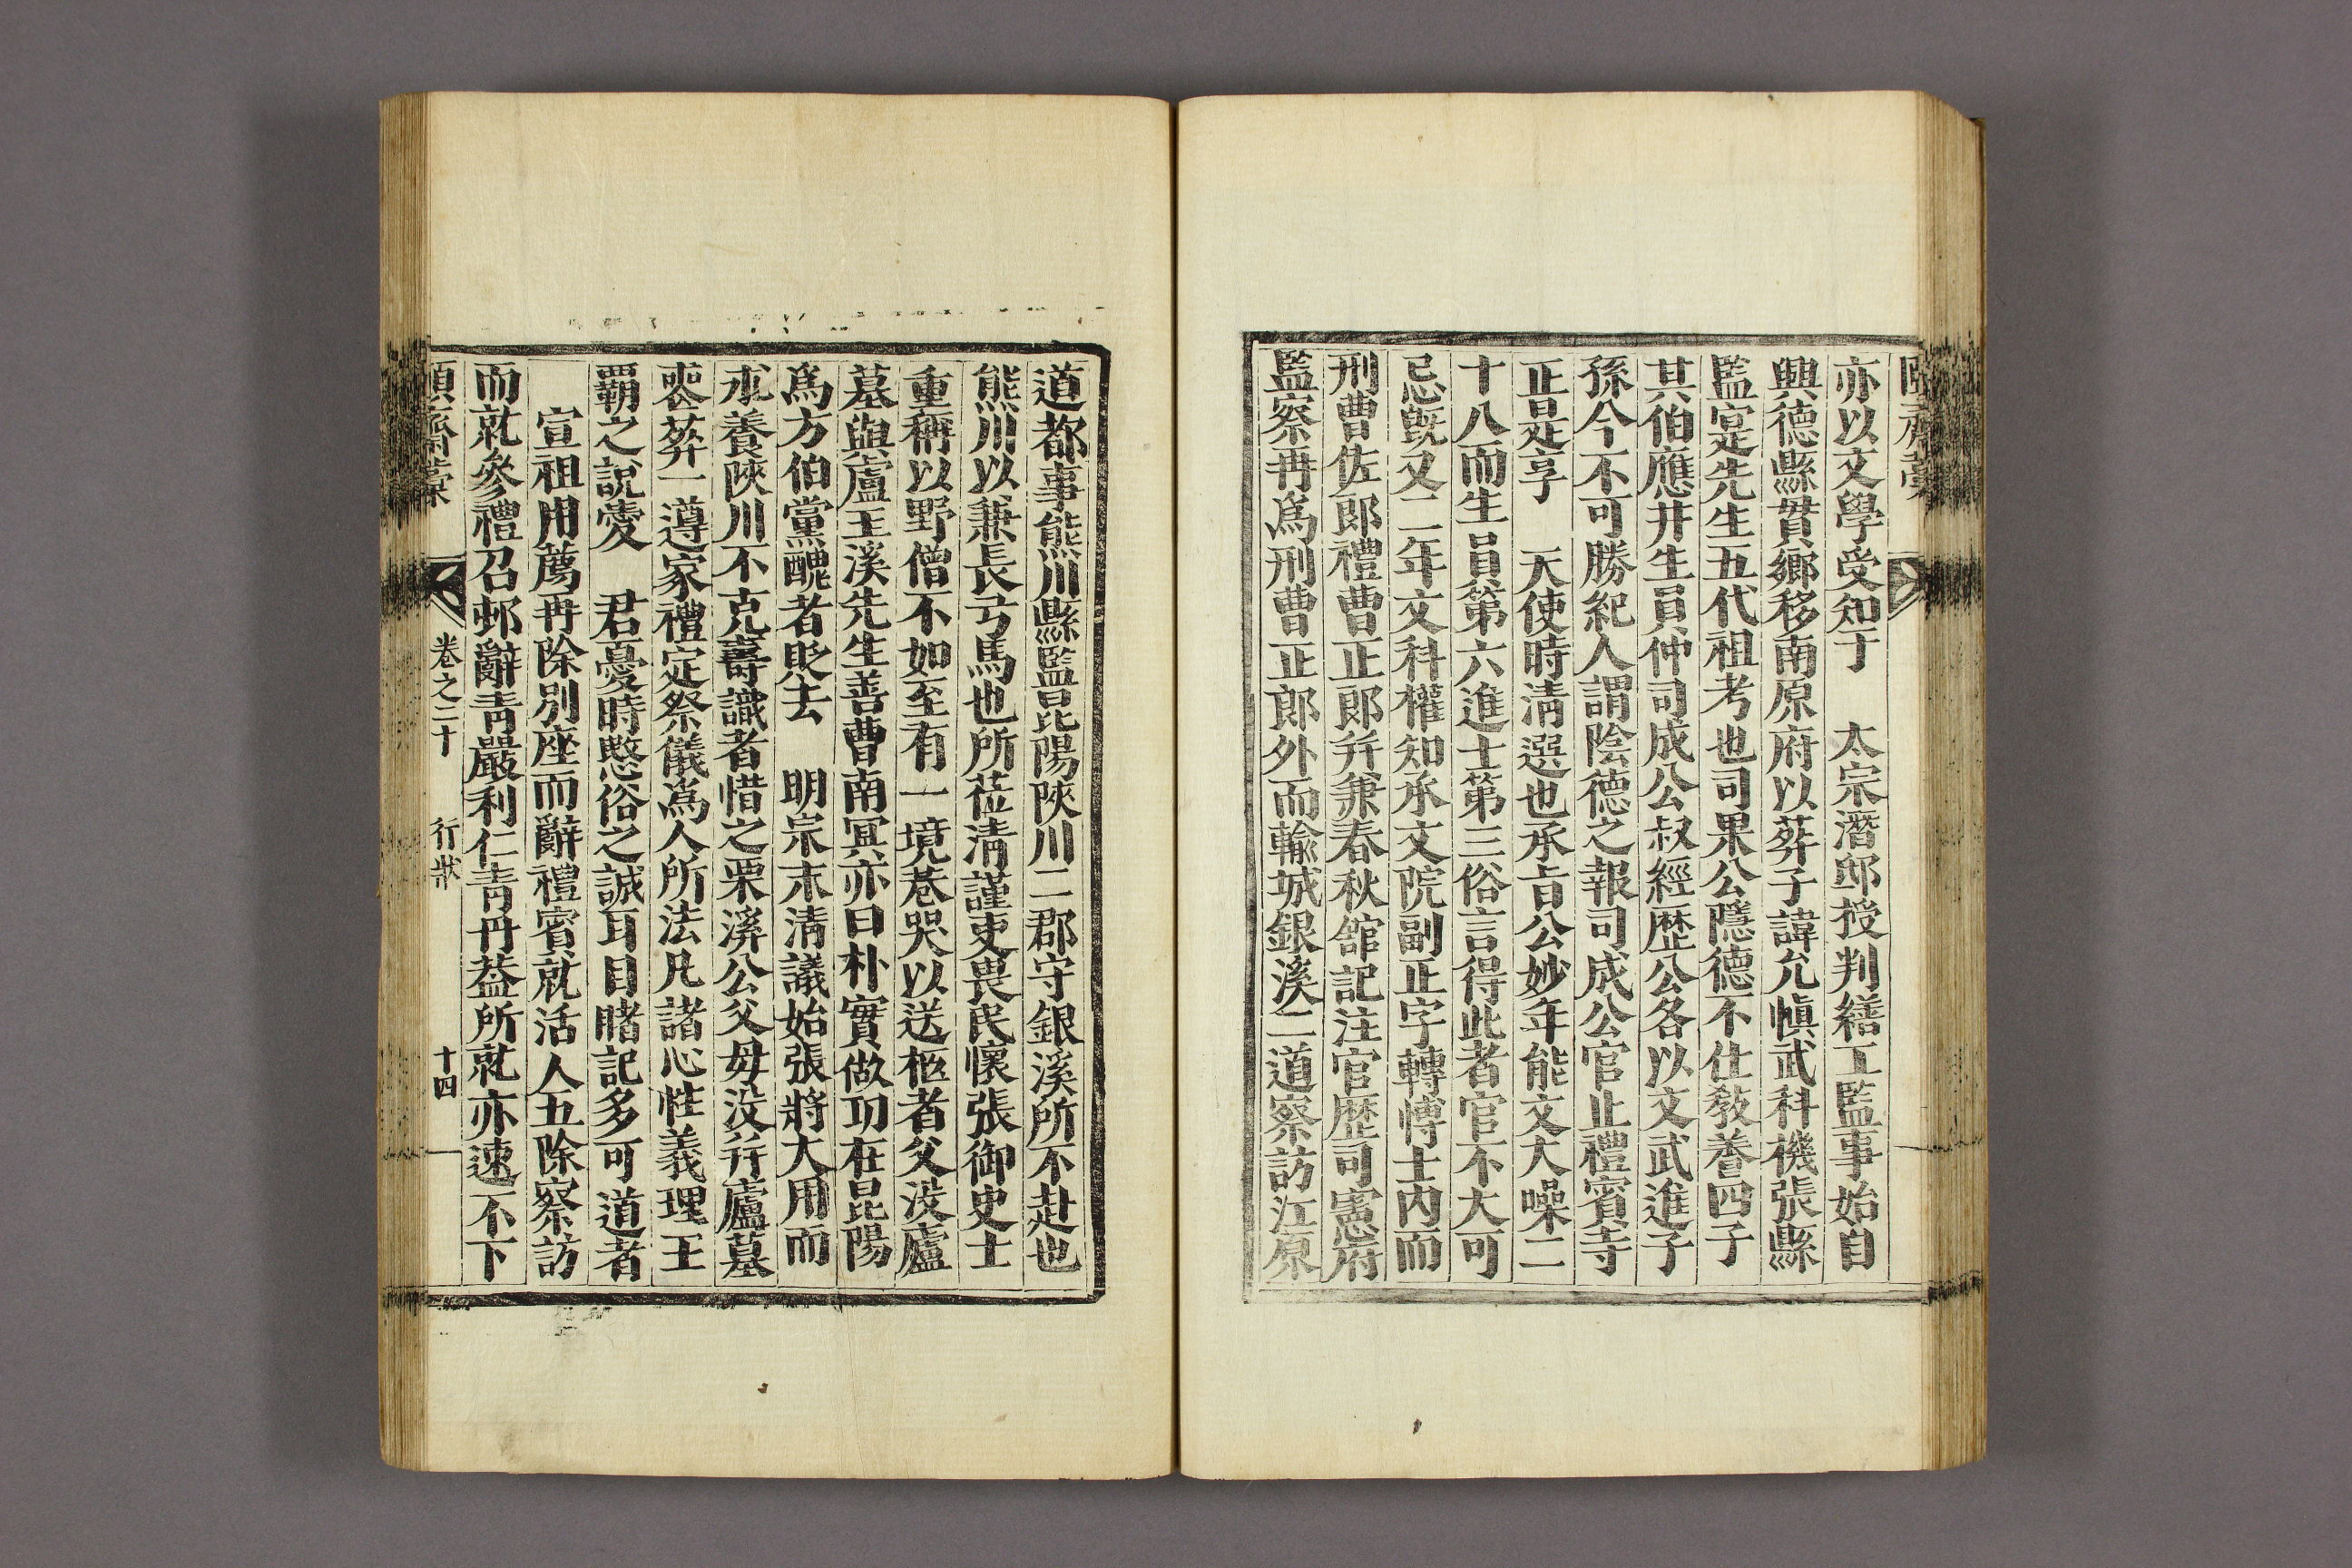 亦以文學受知于　太宗潛邸授判繕工監事始自
興德縣貫鄉移南原府以葬子諱允愼武科機張縣
監寔先生五代祖考也司果公隱德不仕敎養四子
其伯應井生員仲司成公叔經歷公各以文武進子
孫今不可勝紀人謂陰德之報司成公官止禮賓寺
正是享　天使時淸選也承旨公妙年能文大噪二
十八而生員第六進士第三俗言得此者官不大可
忌旣又二年文科權知承文院副正字轉博士內而
刑曹佐郎禮曹正郎幷兼春秋館記注官歷司憲府
監察冉爲刑曹正郎外而輸城銀溪二道察訪江原
道都事熊川縣監昆陽陜川二郡守銀溪所不赴也
熊川以兼長弓馬也所莅淸謹吏畏民懷張御史士
重稱以野僧不如至有一境巷哭以送柩者父没廬
墓與盧玉溪先生善曹南冥亦曰朴實做功在昆陽
爲方伯黨醜者貶去　明宗末淸議始張將大用而
求養陜川不克壽識者惜之栗溪公父母没幷廬墓
喪葬一遵家禮定祭儀爲人所法凡諸心性義理王
覇之說愛　君憂時愍俗之誠耳目睹記多可道者
宣祖用薦冉除別座而辭禮賓就活人五除察訪
而就參禮召邨辭靑嚴利仁靑丹益所就亦速不下
頤齋藁　卷之二十　行狀　十四